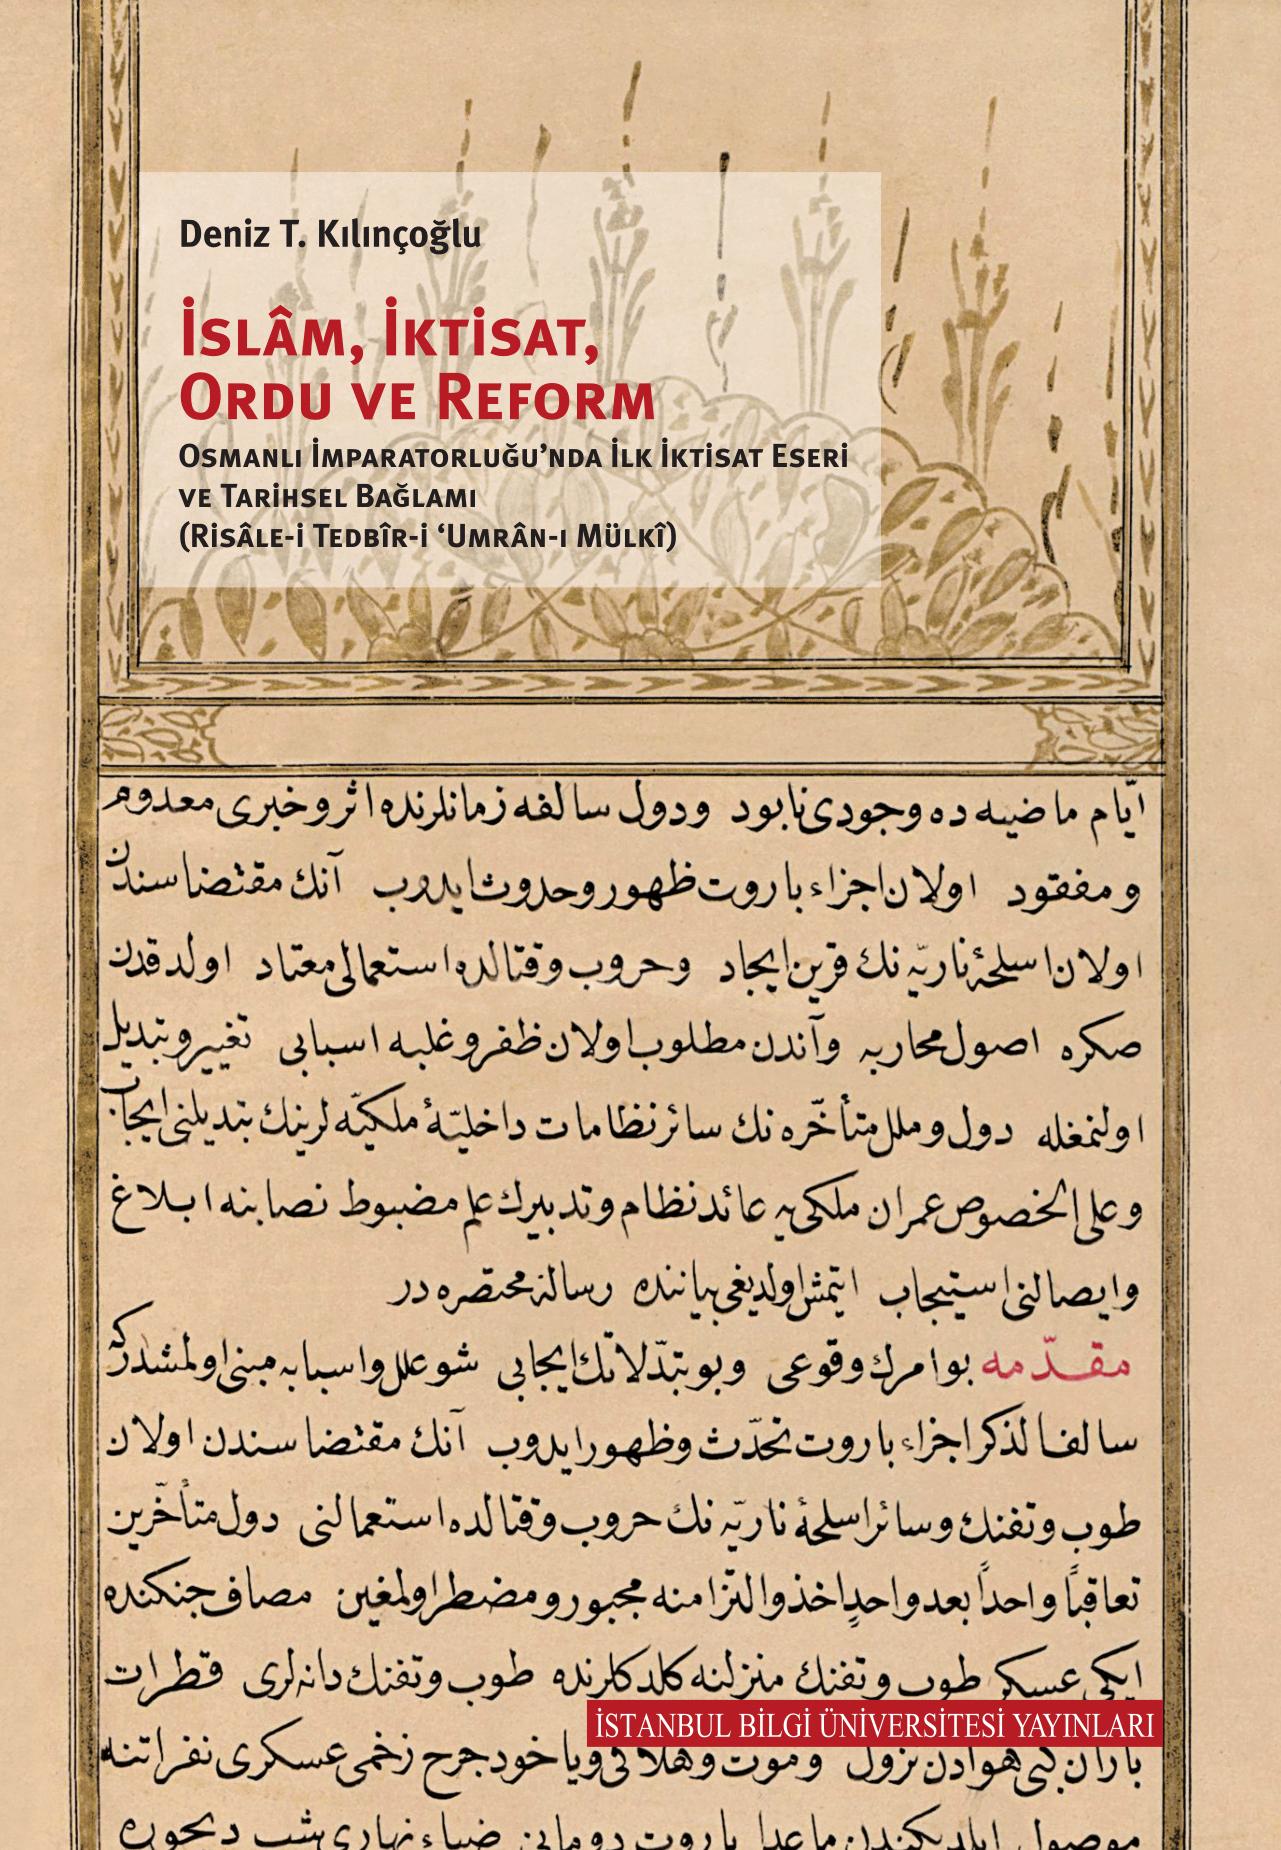 Deniz T. Kılınçoğlu
İSLÂM, İKTİSAT,
ORDU VE REFORM
OSMANLI İMPARATORLUĞU’NDA İLK İKTİSAT ESERİ
VE TARİHSEL BAĞLAMI
(RİSÂLE-İ TEDBÎR-İ ‘UMRÂN-I MÜLKÎ)
ايّام ماضيه ده وجودی نابود ودول سالفه زمانلرنده اثر وخبری معدوم
ومفقود اولان اجزاء باروت ظهور وحدوث ايدوب آنك مقتضاسندن
اولان اسلحۀ ناريّه نك قرين ايجاد وحروب وقتالده استعمالی معتاد اولدقدن
صكره اصول محاربه وآندن مطلوب اولان ظفر وغلبه اسبابی تغيير وتبديل
اولنمغله دول وملل متأخّره نك سائر نظامات داخليّۀ ملكيّه لرينك تبديلنی ايجاب
وعلی الخصوص عمران ملكی يه عائد نظام وتدبيرك علم مضبوط نصابنه ابلاغ
وايصالنی استيجاب ايتمش اولديغی بياننده رسالۀ مختصره در
مقدّمه بو امرك وقوعی وبو تبدّلاتك ايجابی شو علل واسبابه مبنی اولمشدركه
سالف الذكر اجزاء باروت تحدّث وظهور ايدوب آنك مقتضاسندن اولان
طوب وتفنك وسائر اسلحۀ ناريّه نك حروب وقتالده استعمالنی دول متأخّرين
تعاقباً واحداً بعد واحدٍ اخذ والتزامنه مجبور ومضطر اولمغين مصاف جنكنده
ايكی عسكر طوب وتفنك منزلنه كلدكلرنده طوب وتفنك دانه لری قطرات
باران كبی هوادن نزول وموت وهلاكی وياخود جرح زخمی عسكری نفراتنه
موصول ايلديكندن ماعدا باروت دومانی ضياء نهاری شب ديجوره
İSTANBUL BİLGİ ÜNİVERSİTESİ YAYINLARI